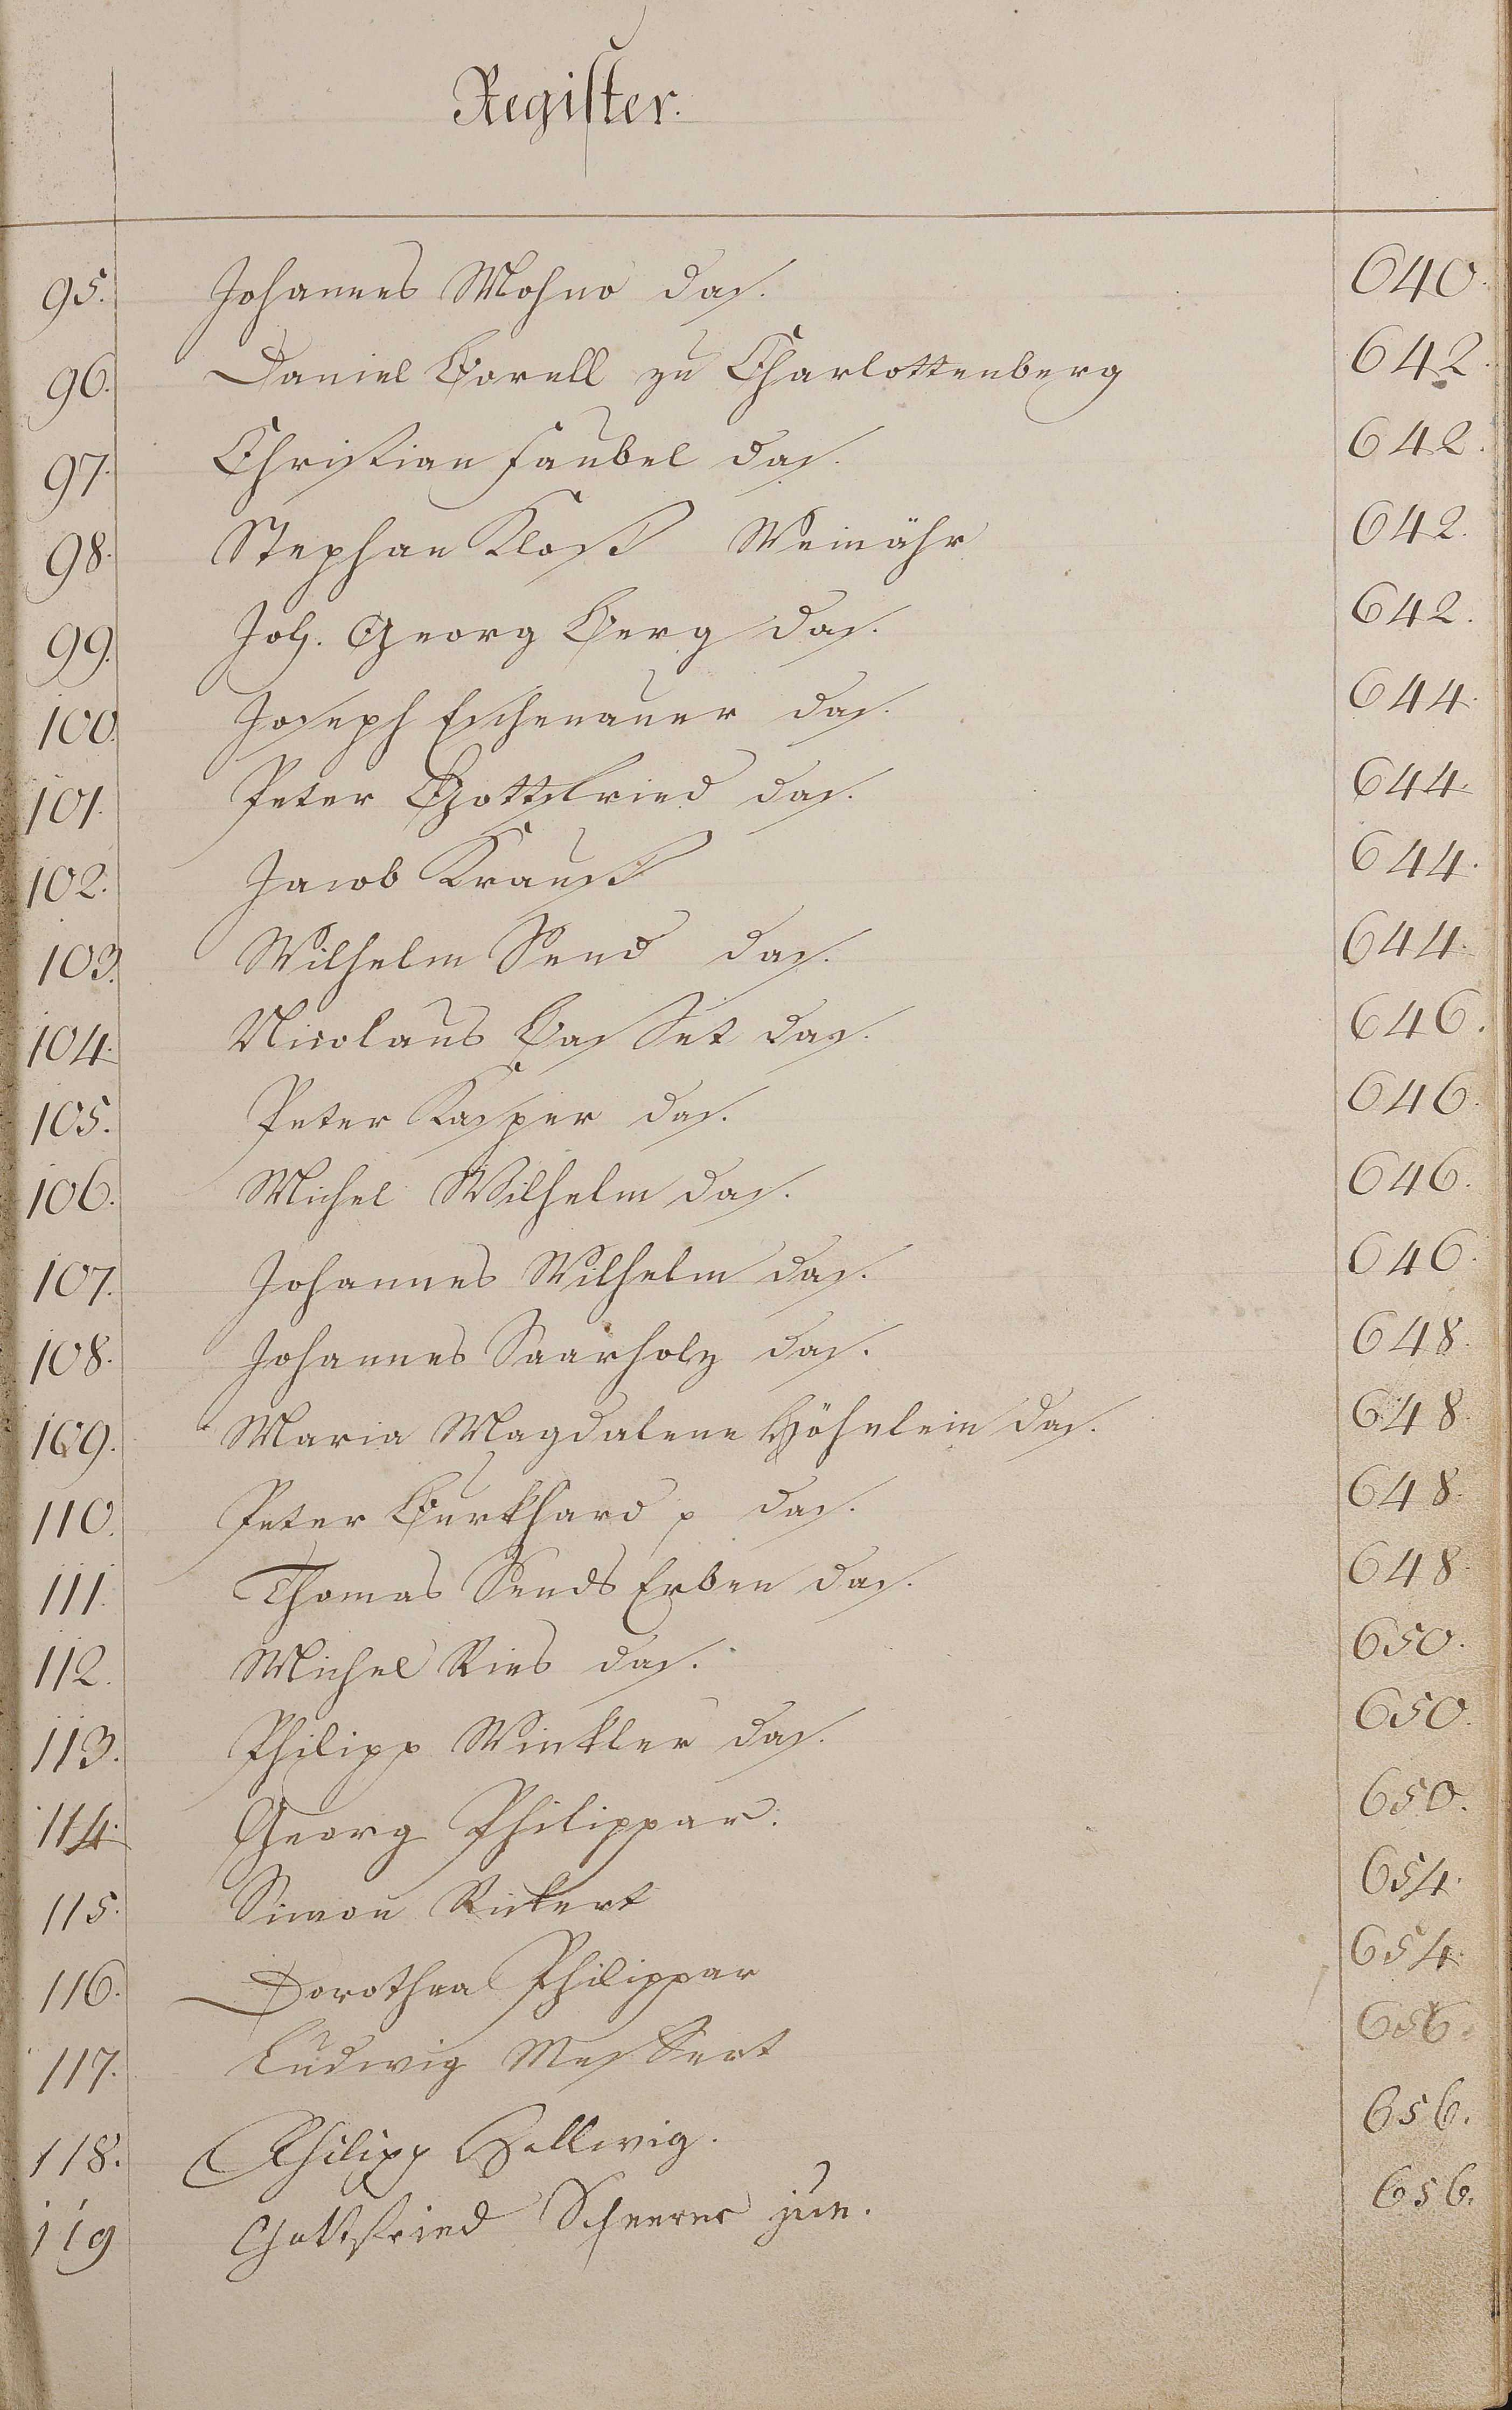 Register.
95. Johannes Mohno das. 640.
96. Daniel Borell zu Charlottenberg 642.
97. Christian Faubel das. 642.
98. Stephan Kloß Weinähr 642.
99. Joh. Georg Berg das. 642.
100. Joseph Eschenauer das. 644.
101. Peter Gottfried das. 644.
102. Jacob Krauß 644.
103. Wilhelm Send das. 644.
104. Nicolaus Basset das. 646.
105. Peter Kasper das. 646.
106. Michel Wilhelm das. 646.
107. Johannes Wilhelm das. 646.
108. Johannes Saarholz das. 648.
109. Maria Magdalene Höhnlein das. 648.
110. Peter Burkhard das. 648.
111. Thomas Sends Erben das. 648.
112. Michel Ries das. 650.
113. Philipp Winkler das. 650.
114. Georg Philippar. 650.
115. Simon Rickert 654.
116. Dorothea Philippar 654.
117. Ludwig Messert 656.
118. Philipp Hellwig. 656.
119 Gottfried Scheerer jun. 656.